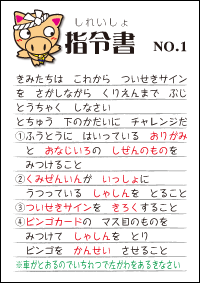 しれいしょ
指令書 NO.1
きみたちは これから ついせきサイン
を さがしながら くりえんまで ぶじ
とうちゃく しなさい
とちゅう 下のかだいに チャレンジだ
①ふうとうに はいっている おりがみ
と おなじいろの しぜんのものを
みつけること
②くみぜんいんが いっしょに
うつっている しゃしんを とること
③ついせきサインを きろくすること
④ビンゴカードの マス目のものを
みつけて しゃしんを とり
ビンゴを かんせい させること
※車がとおるのでいちれつで左がわをあるきなさい